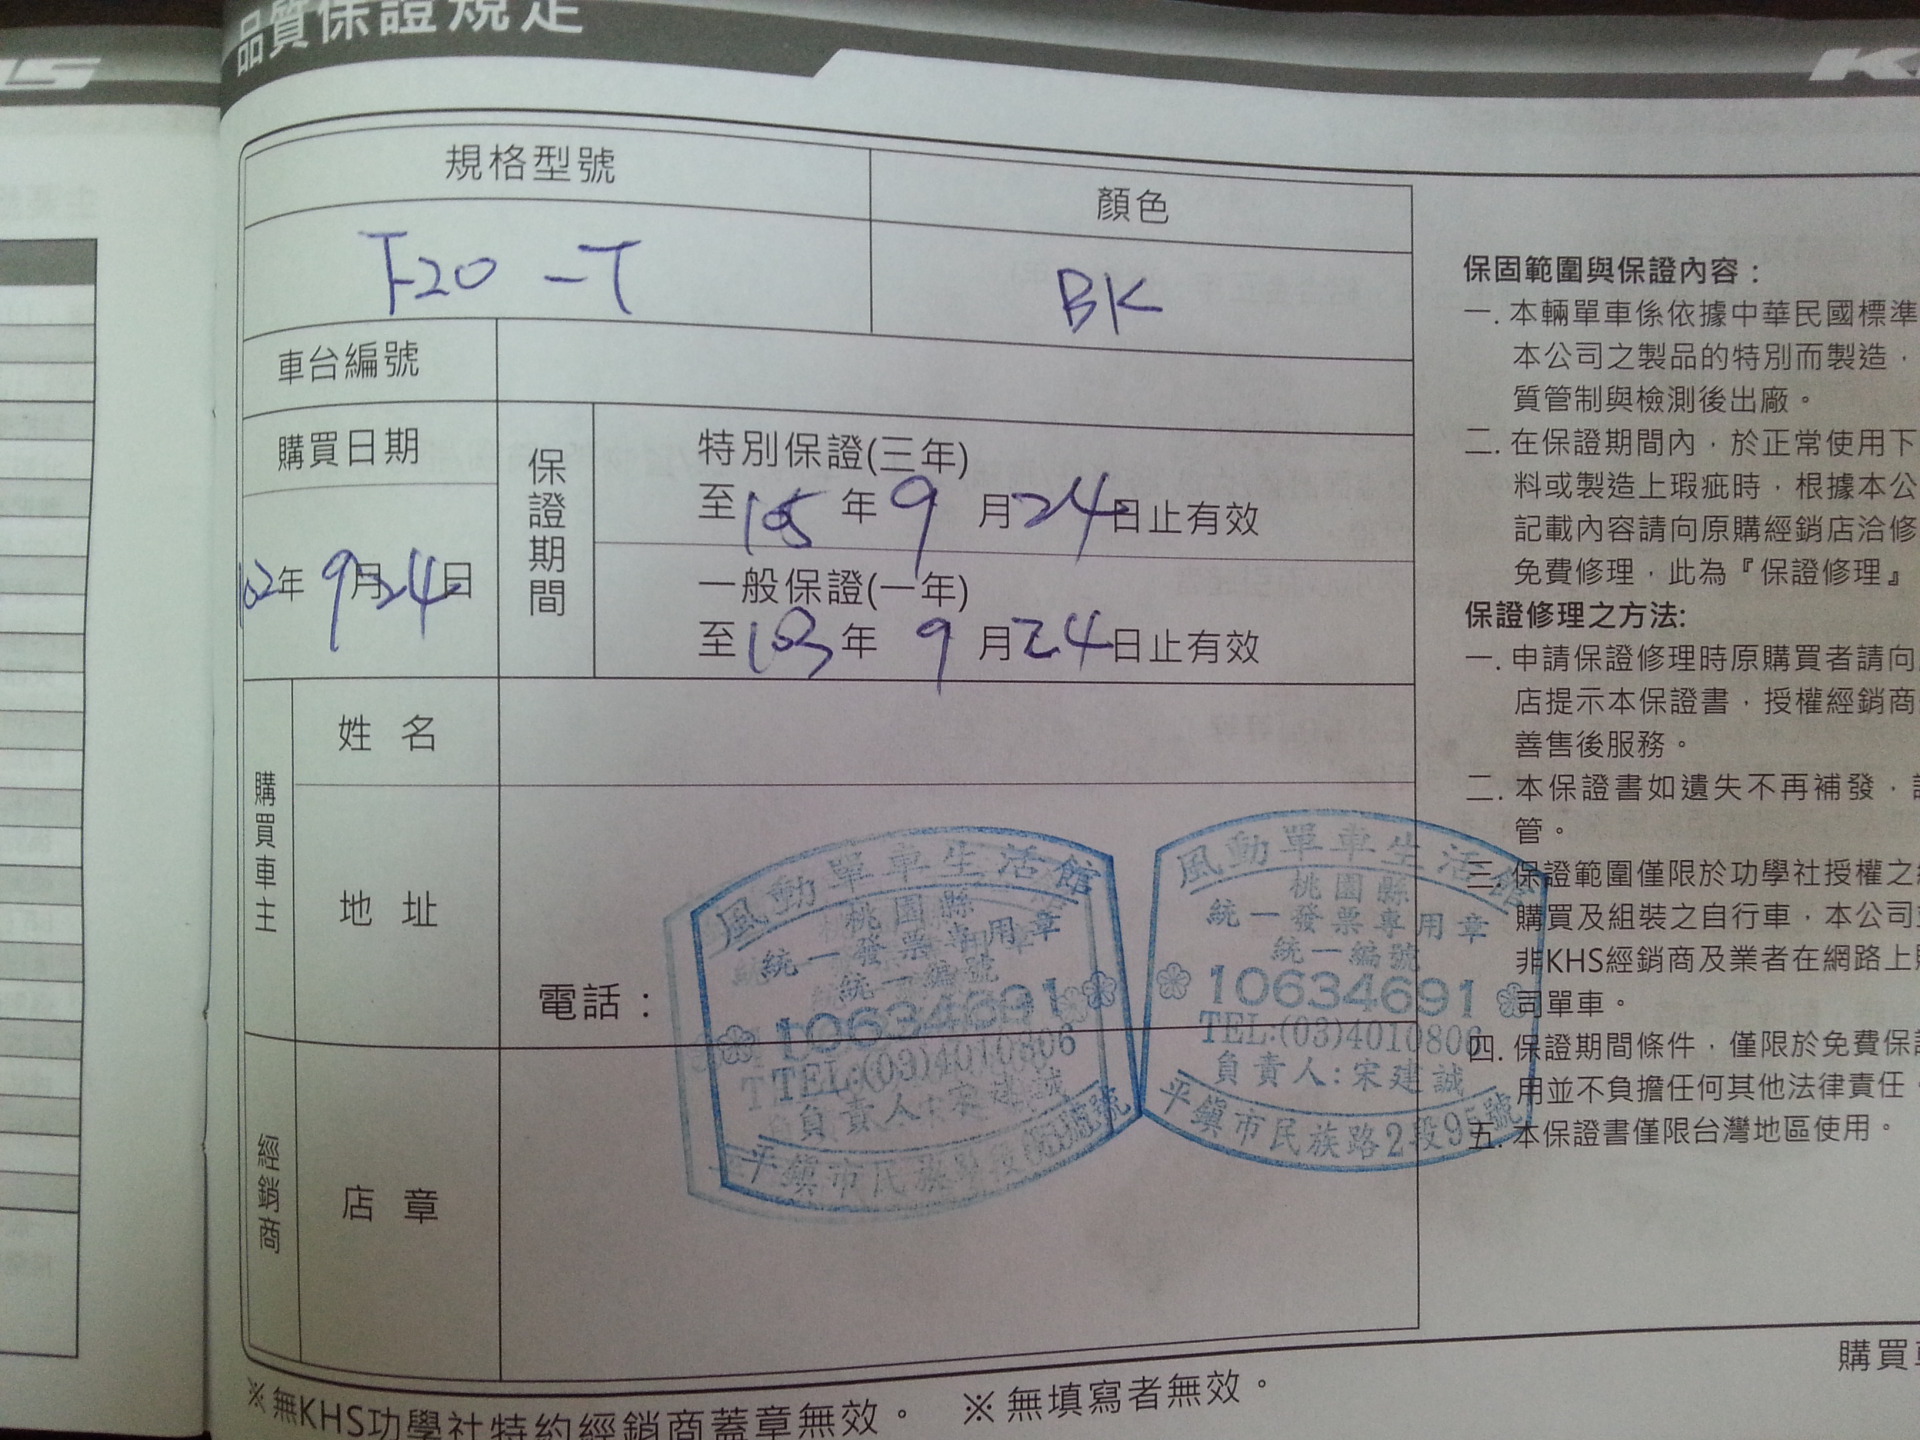 品質保證規定
規格型號
顏色
F20-T
BK
車台編號
購買日期
102年9月24日
保證期間
特別保證(三年)
至105年9月24日止有效
一般保證(一年)
至103年9月24日止有效
購買車主
姓名
地址
電話：
經銷商
店章
風動單車生活館
桃園縣
統一發票專用章
統一編號
10634691
TEL:(03)4010806
負責人:宋建誠
風動單車生活館
桃園縣
統一發票專用章
統一編號
10634691
TEL:(03)4010806
負責人:宋建誠
平鎮市民族路2段95號
※無KHS功學社特約經銷商蓋章無效。 ※無填寫者無效。
保固範圍與保證內容：
一. 本輛單車係依據中華民國標準
本公司之製品的特別而製造，
質管制與檢測後出廠。
二. 在保證期間內，於正常使用下
料或製造上瑕疵時，根據本公
記載內容請向原購經銷店洽修
免費修理，此為『保證修理』
保證修理之方法:
一. 申請保證修理時原購買者請向
店提示本保證書，授權經銷商
善售後服務。
二. 本保證書如遺失不再補發，
管。
三. 保證範圍僅限於功學社授權之
購買及組裝之自行車，本公司
非KHS經銷商及業者在網路上
司單車。
四. 保證期間條件，僅限於免費保
用並不負擔任何其他法律責任
五. 本保證書僅限台灣地區使用。
購買